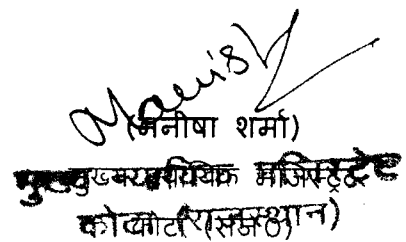 Manish
(मनीषा शर्मा)
मुख्य न्यायिक मजिस्ट्रेट
कोटा (राजस्थान)